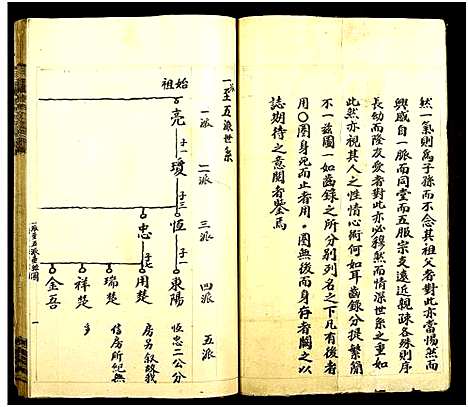 然一氣則為子孫而不念其祖父者對此亦當惕然而
興感自一脈而同堂而五服宗支遠近親疎各殊則序
長幼而隆友愛者對此亦必穆然而情深世系之重如
此然亦視其人之性情心術何如耳齒錄分提繁簡
不一茲圖一如齒錄之所分別列名之下凡有後者
用〇圈身死而止者用。圈無後而身存者闕之以
誌期待之意閱者鑒焉
一至五派世系
一派
二派
三派
四派
五派
始祖
亮
子一
瓊
子三
恆
子一
東陽
恆忠二公分
忠
子七
用楚
房另叙故我
瑞楚
信房所紀無
祥楚
多
金吾
一派至五派垂絲圖
一